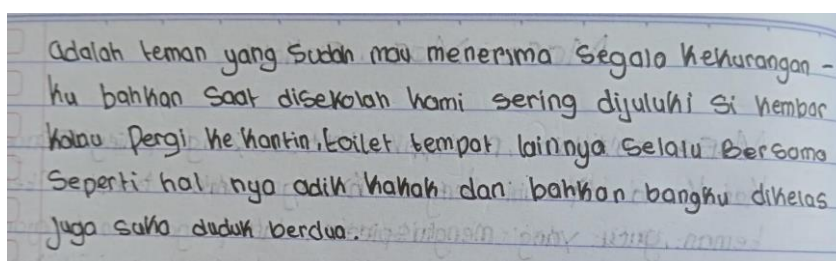 adalah teman yang sudah mau menerima segala kekurangan -
ku bahkan saat disekolah kami sering dijuluki si kembar
kalau Pergi ke kantin, toilet tempat lainnya selalu Bersama
Seperti hal nya adik kakak dan bahkan bangku dikelas
Juga suka duduk berdua.